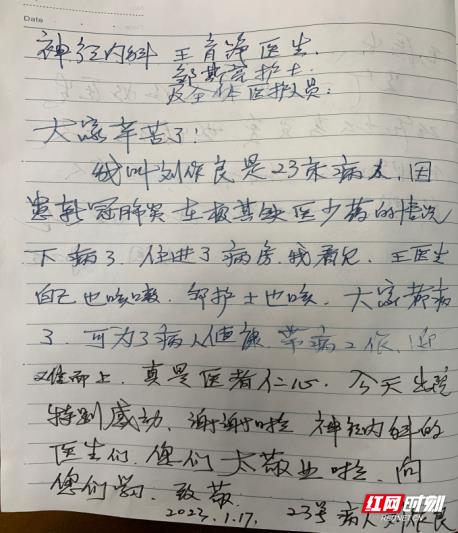 Date
神经内科 王育铮医生.
邹斯莹护士
及全体医护人员:
大家辛苦了!
我叫刘作良是23床病友,因
患新冠肺炎在极其缺医少药的情况
下病了.住进了病房.我看见.王医生
自己也咳嗽.邹护士也咳.大家都病
了.可为了病人健康 带病工作.迎
难而上.真是医者仁心.今天出院
特别感动.谢谢啦 神经内科的
医生们.您们太敬业啦.向
您们学习.致敬
2023.1.17. 23号病人刘作良
红网时刻
REDNET.CN